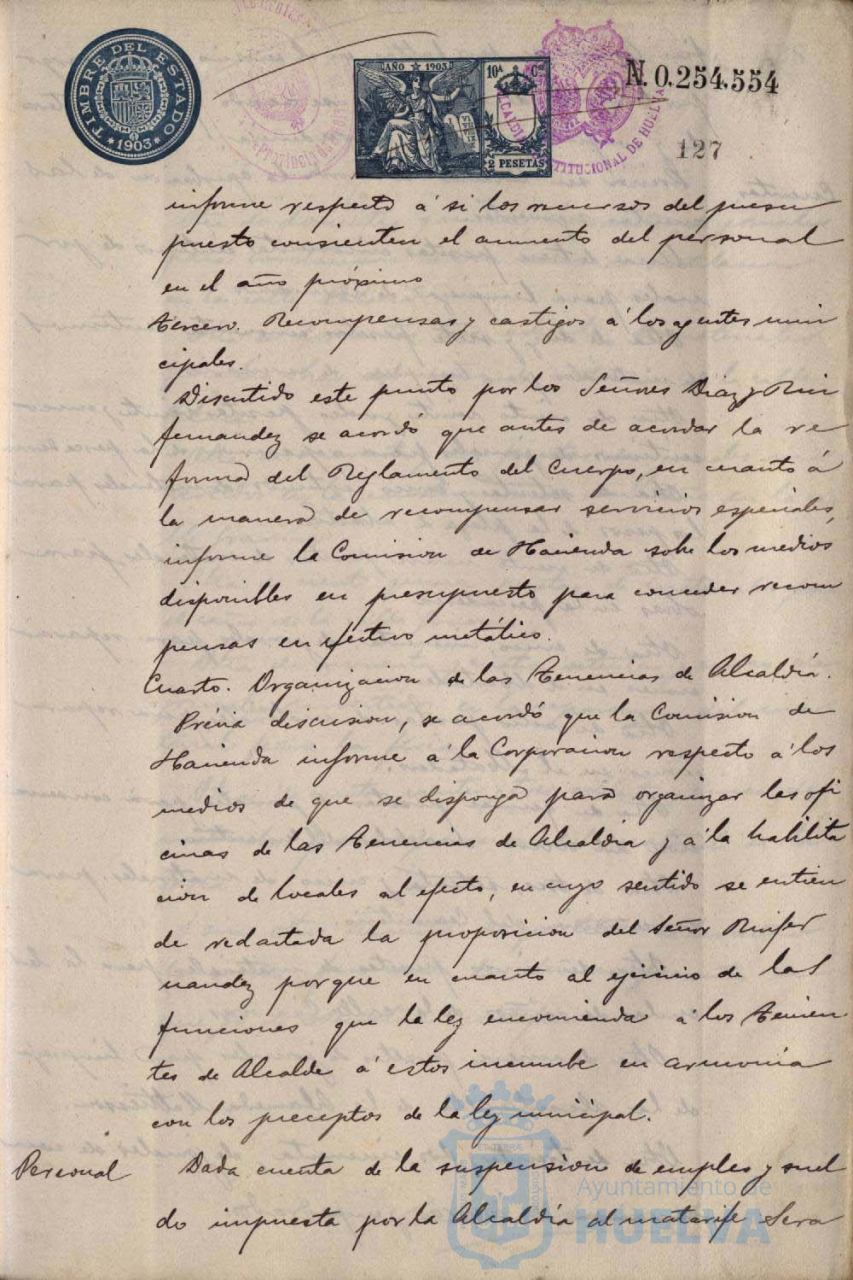 TIMBRE DEL ESTADO
1903
AÑO 1903
10ª Cª
2 PESETAS
N. 0.254.554
127
informe respecto á si los recursos del presu
puesto consienten el aumento del personal
en el año próximo
Tercero. Recompensas y castigos á los agentes muni
cipales.
Discutido este punto por los Señores Diaz y Ruif
fernandez se acordó que antes de acordar la re
forma del Reglamento del Cuerpo, en cuanto á
la manera de recompensar servicios especiales,
informe la Comision de Hacienda sobre los medios
disponibles en presupuesto para conceder recom
pensas en efectivo metálico.
Cuarto. Organizacion de las Tenencias de Alcaldía.
Prévia discusion, se acordó que la Comision de
Hacienda informe á la Corporacion respecto á los
medios de que se disponga para organizar las ofi
cinas de las Tenencias de Alcaldia y á la habilita
cion de locales al efecto, en cuyo sentido se entien
de redactada la proposicion del Señor Ruifer
nandez porque en cuanto al ejercicio de las
funciones que la ley encomienda á los Tenien
tes de Alcalde á estos incumbe en armonia
con los preceptos de la ley municipal.
Personal Dada cuenta de la suspension de empleo y suel
do impuesta por la Alcaldía al matarife Sera
Ayuntamiento de
HUELVA